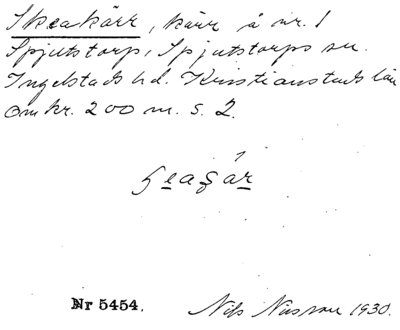 Skeakärr, kärr å nr. 1
Spjutstorp, Spjutstorps sn.
Ingelstads hd. Kristianstads län
Omkr. 200 m. s. 2.
Nr 5454.
Nils Nilsson 1930.